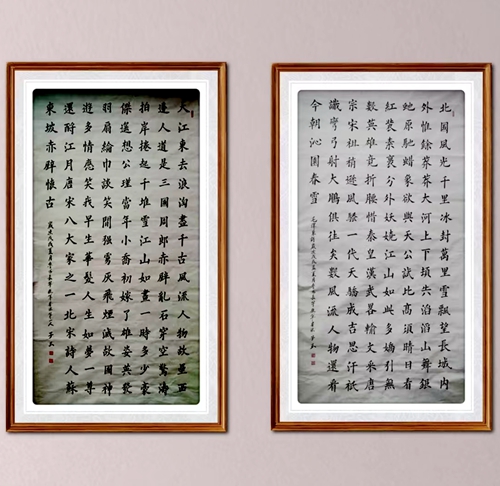 大江東去浪淘盡千古風流人物故壘西
邊人道是三國周郎赤壁亂石穿空驚濤
拍岸捲起千堆雪江山如畫一時多少豪
傑遥想公瑾當年小喬初嫁了雄姿英發
羽扇綸巾談笑間强虜灰飛煙滅故國神
遊多情應笑我早生華髮人生如夢一尊
還酹江月唐宋八大家之一北宋詩人蘇
東坡赤壁懷古
北國風光千里冰封萬里雪飄望長城内
外惟餘莽莽大河上下頓失滔滔山舞銀
蛇原馳蠟象欲與天公試比高須晴日看
紅裝素裹分外妖嬈江山如此多嬌引無
數英雄競折腰惜秦皇漢武畧輸文采唐
宗宋祖稍遜風騷一代天驕成吉思汗祗
識彎弓射大鵰俱往矣數風流人物還看
今朝沁園春雪